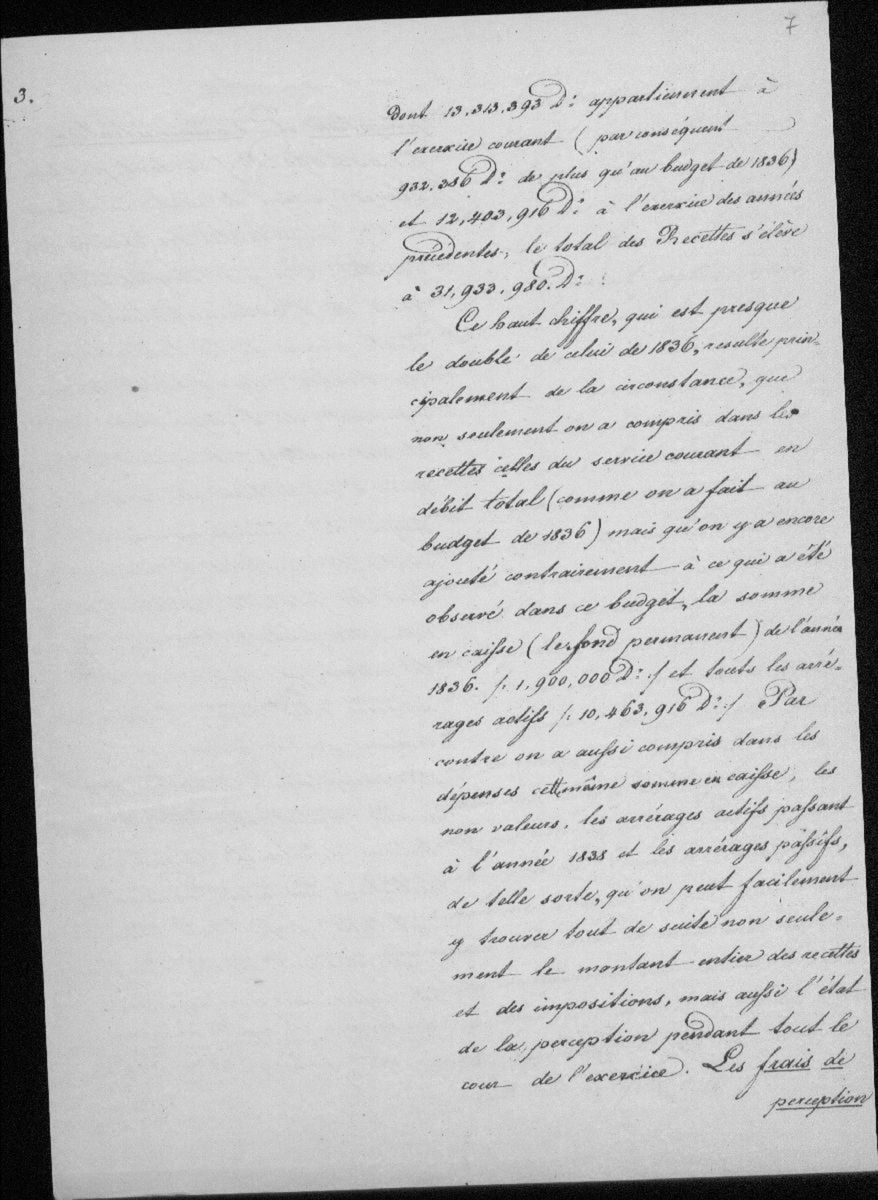 7
3.
dont 13,313,393 D: appartiennent à
l'exercise courant (par conséquent
932,386 D: de plus qu'au budget de 1836)
et 12,403,916 D: à l'exercise des années
précédentes, le total des Recettes s'élève
à 31,933,980. D:
Ce haut chiffre, qui est presque
le double de celui de 1836, resulte prin-
cipalement de la circonstance, que
non seulement on a compris dans les
recettes celles du service courant en
débit total (comme on a fait au
budget de 1836) mais qu'on y a encore
ajouté contrairement à ce qui a été
observé dans ce budget, la somme
en caisse (le fond permanent) de l'année
1836. /: 1,900,000 D: :/ et touts les arré-
rages actifs /: 10,463,916 D: :/ Par
contre on a aussi compris dans les
dépenses cette même somme en caisse, les
non valeurs, les arrérages actifs passant
à l'année 1838 et les arrérages passifs,
de telle sorte, qu'on peut facilement
y trouver tout de suite non seule-
ment le montant entier des recettes
et des impositions, mais aussi l'état
de la perception pendant tout le
cour de l'exercice. Les frais de
perception